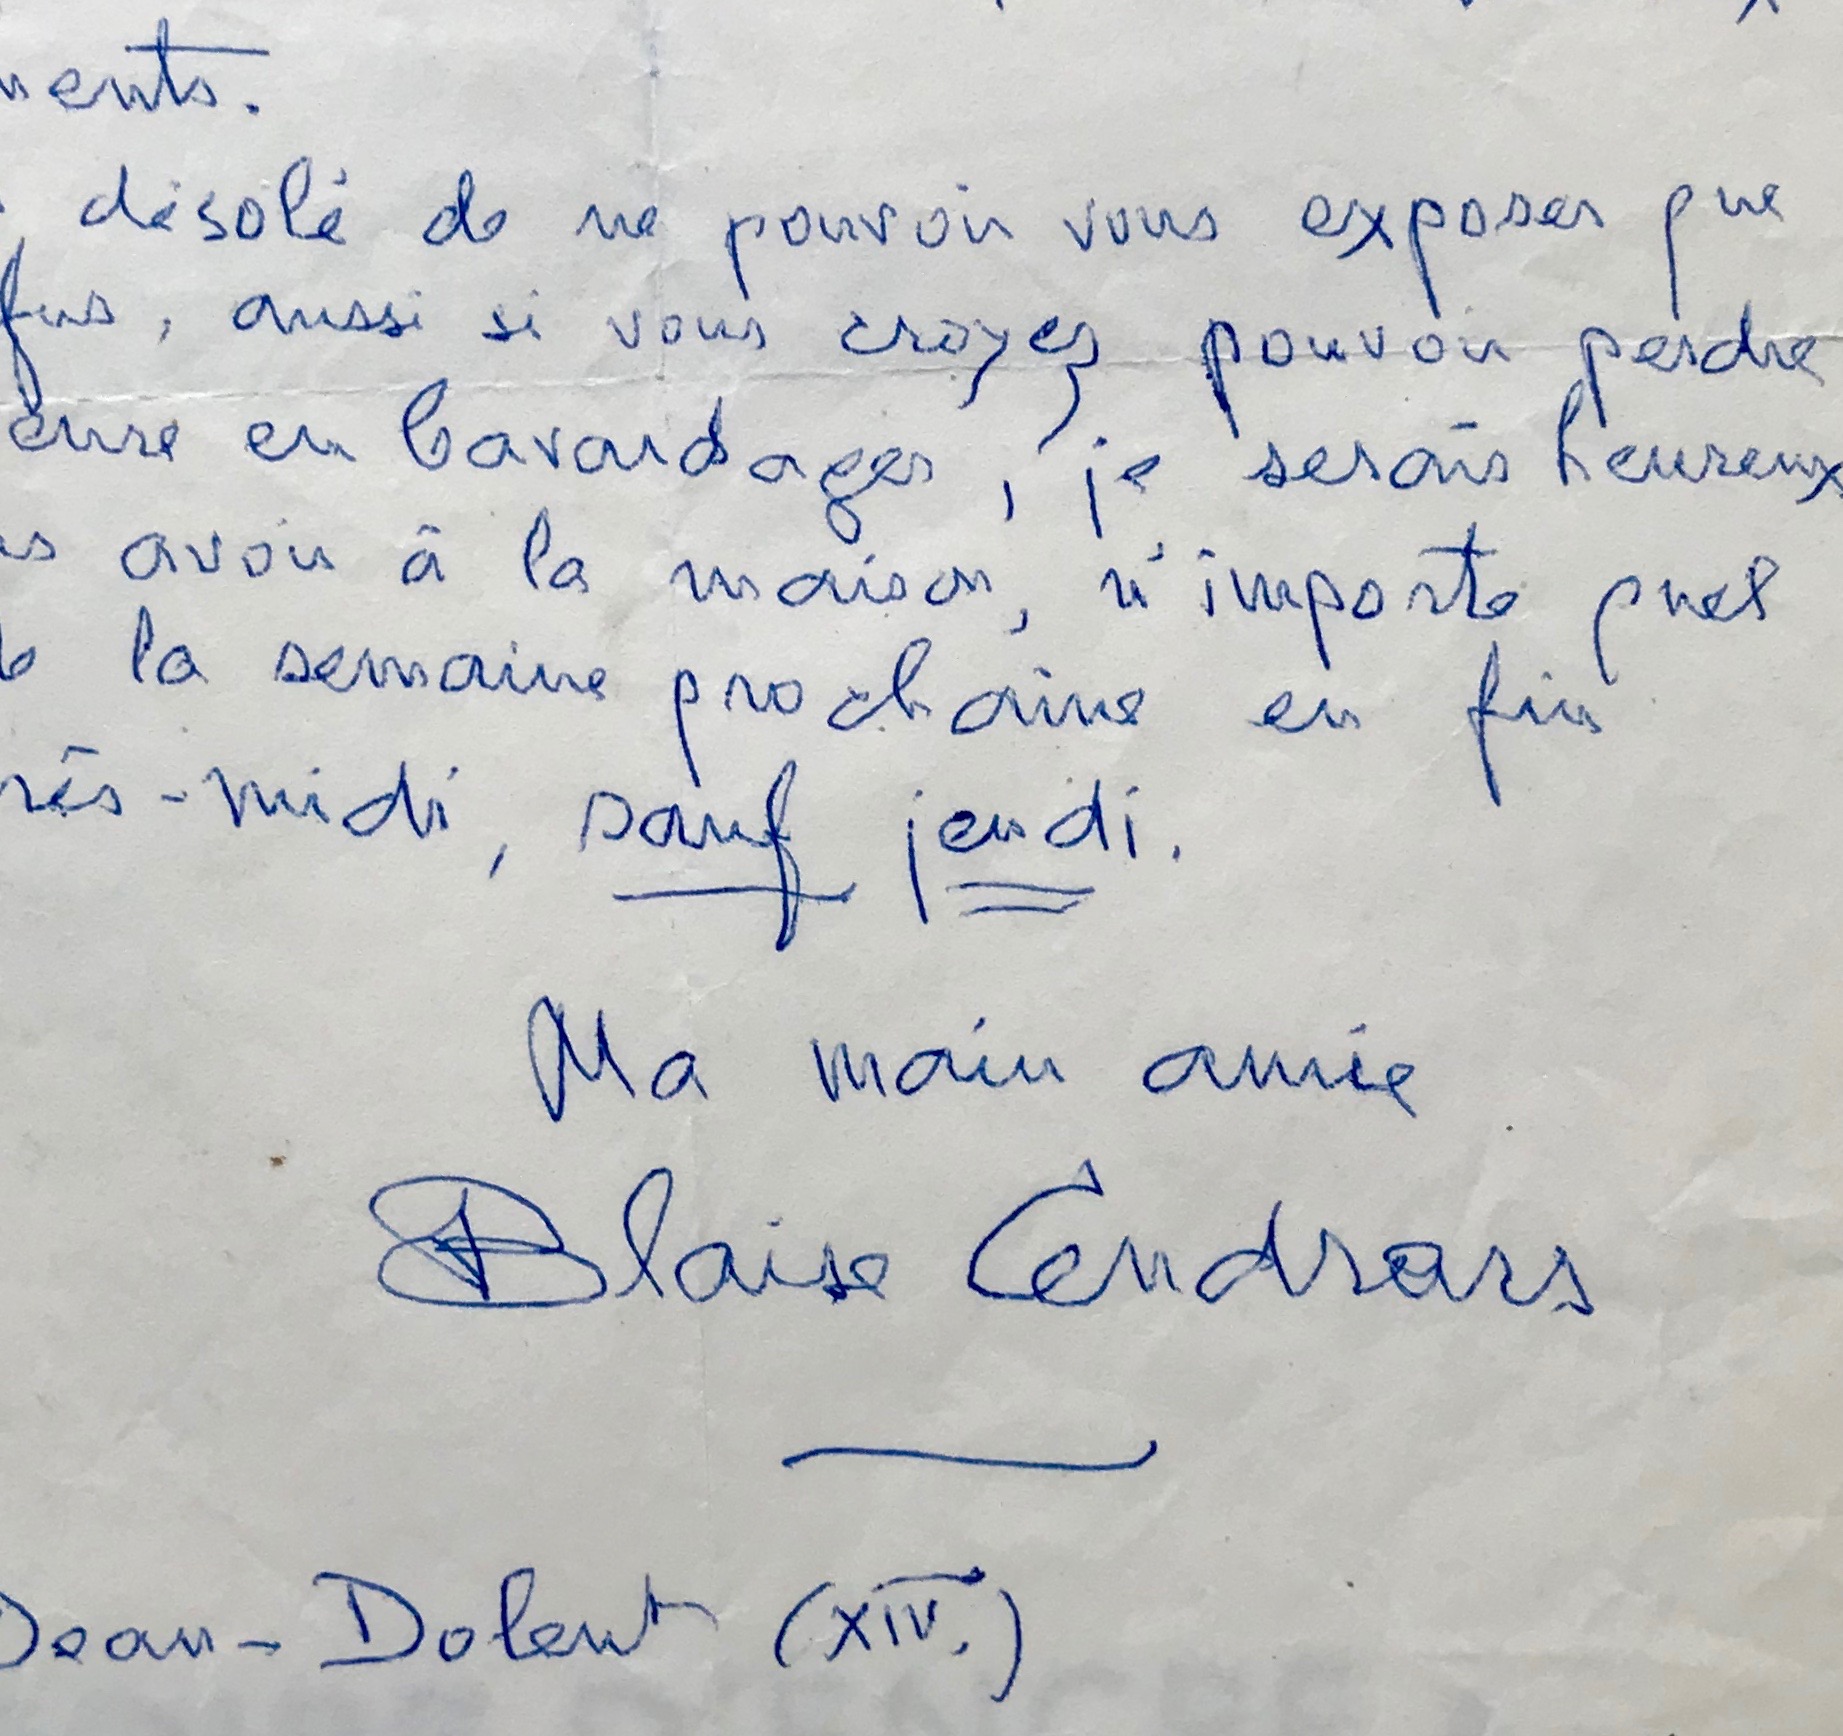 ments.
désolé de ne pouvoir vous exposer que
fus, aussi si vous croyez pouvoir perdre
eure en bavardages, je serais heureux
us avoir à la maison, n'importe quel
de la semaine prochaine en fin
rès-midi, sauf jeudi.
Ma main amie
Blaise Cendrars
Jean-Dolent (XIV.)